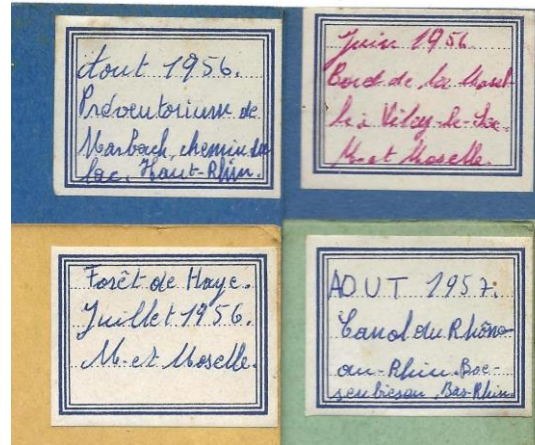 Aout 1956.
Préventorium de
Marbach, chemin du
lac. Haut-Rhin.
Juin 1956
Bord de la Mosel
le à Viley-le-Sec.
M. et Moselle.
Forêt de Haye.
Juillet 1956.
M. et Moselle.
AOUT 1957.
Canal du Rhône
au-Rhin. Boe-
senbiesen. Bas-Rhin.